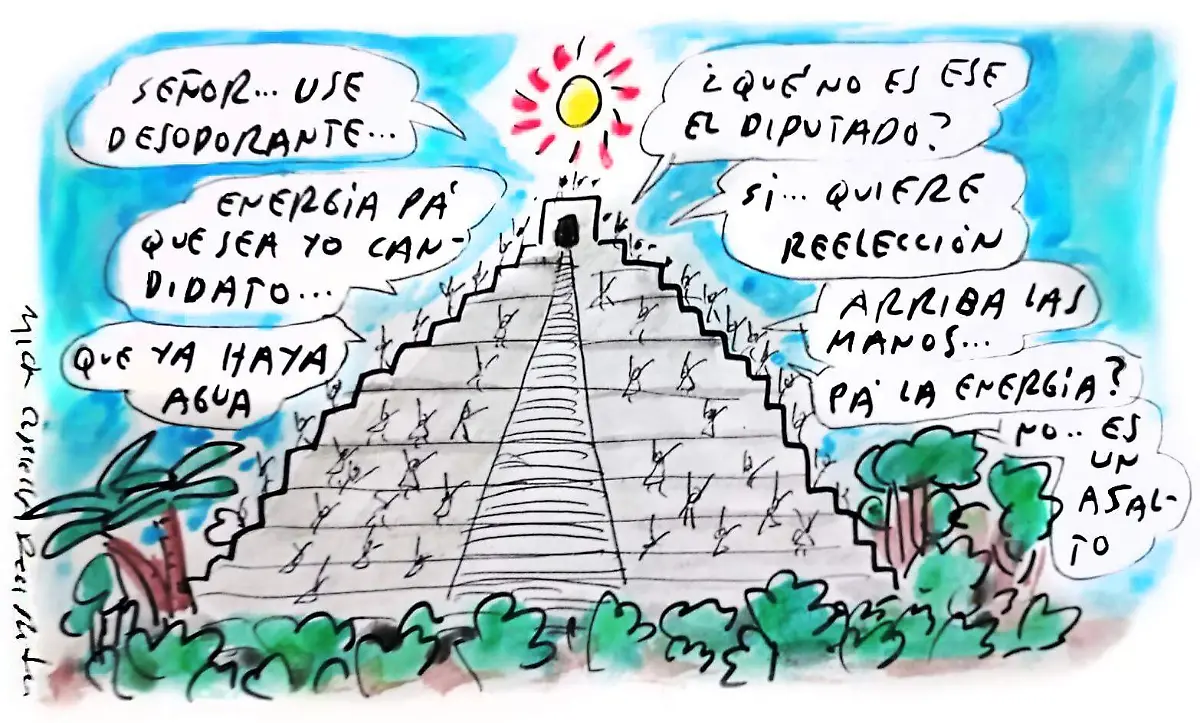 SEÑOR... USE
DESODORANTE...
ENERGÍA PA'
QUE SEA YO CAN-
DIDATO...
QUE YA HAYA
AGUA
¿QUÉ NO ES ESE
EL DIPUTADO?
SÍ... QUIERE
REELECCIÓN
ARRIBA LAS
MANOS...
PA' LA ENERGÍA?
NO.. ES
UN
ASAL-
TO